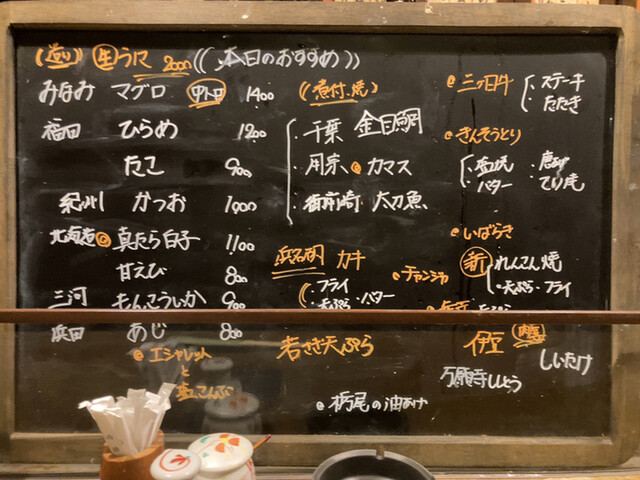 生 うに 2000 ((本日のおすすめ))
みなみ マグロ 中トロ 1400
福田 ひらめ 1200
たこ 900
紀州 かつお 1000
北海道 真たら白子 1100
甘えび 800
三河 もんごういか 900
浜田 あじ 800
エシャレット
と
(煮付・焼)
千葉 金目鯛
用宗 カマス
御前崎 太刀魚
浜名湖 カキ
フライ
天ぷら・バター
チャンジャ
若さぎ天ぷら
栃尾の油あげ
三ケ日牛
ステーキ
たたき
きんそうとり
バター
いばらき
新 れんこん焼
天ぷら・フライ
伊豆 肉厚 しいたけ
万願寺ししとう